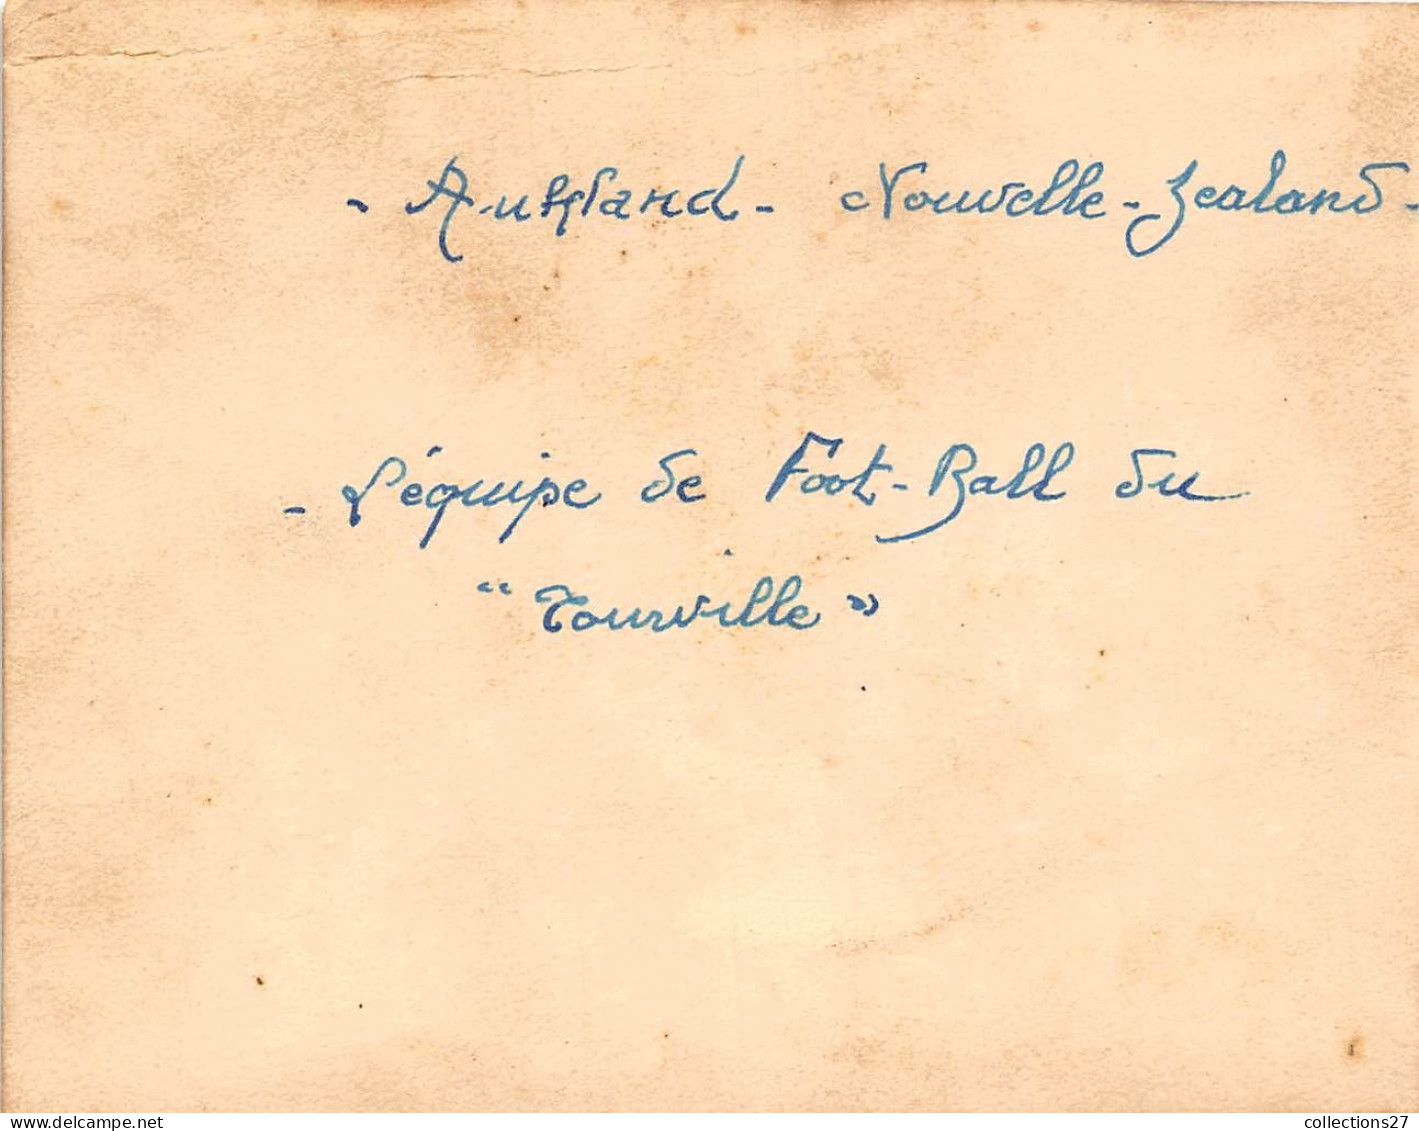 - Aukland - Nouvelle-Zealand -
- L'équipe de Foot-Ball du
" Tourville "
collections27